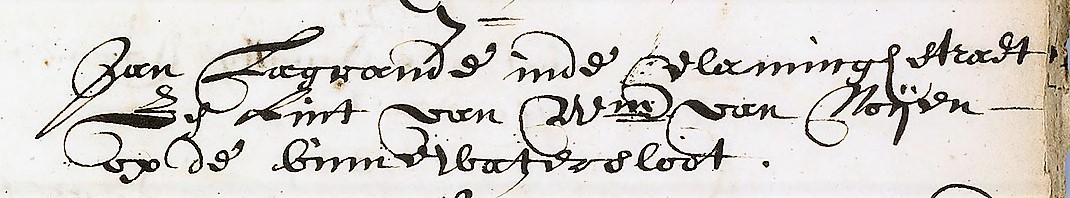 Jan Lagrande inde vlamingh straet
Een kint van Wm van Noijen
op de binnewatersloot.